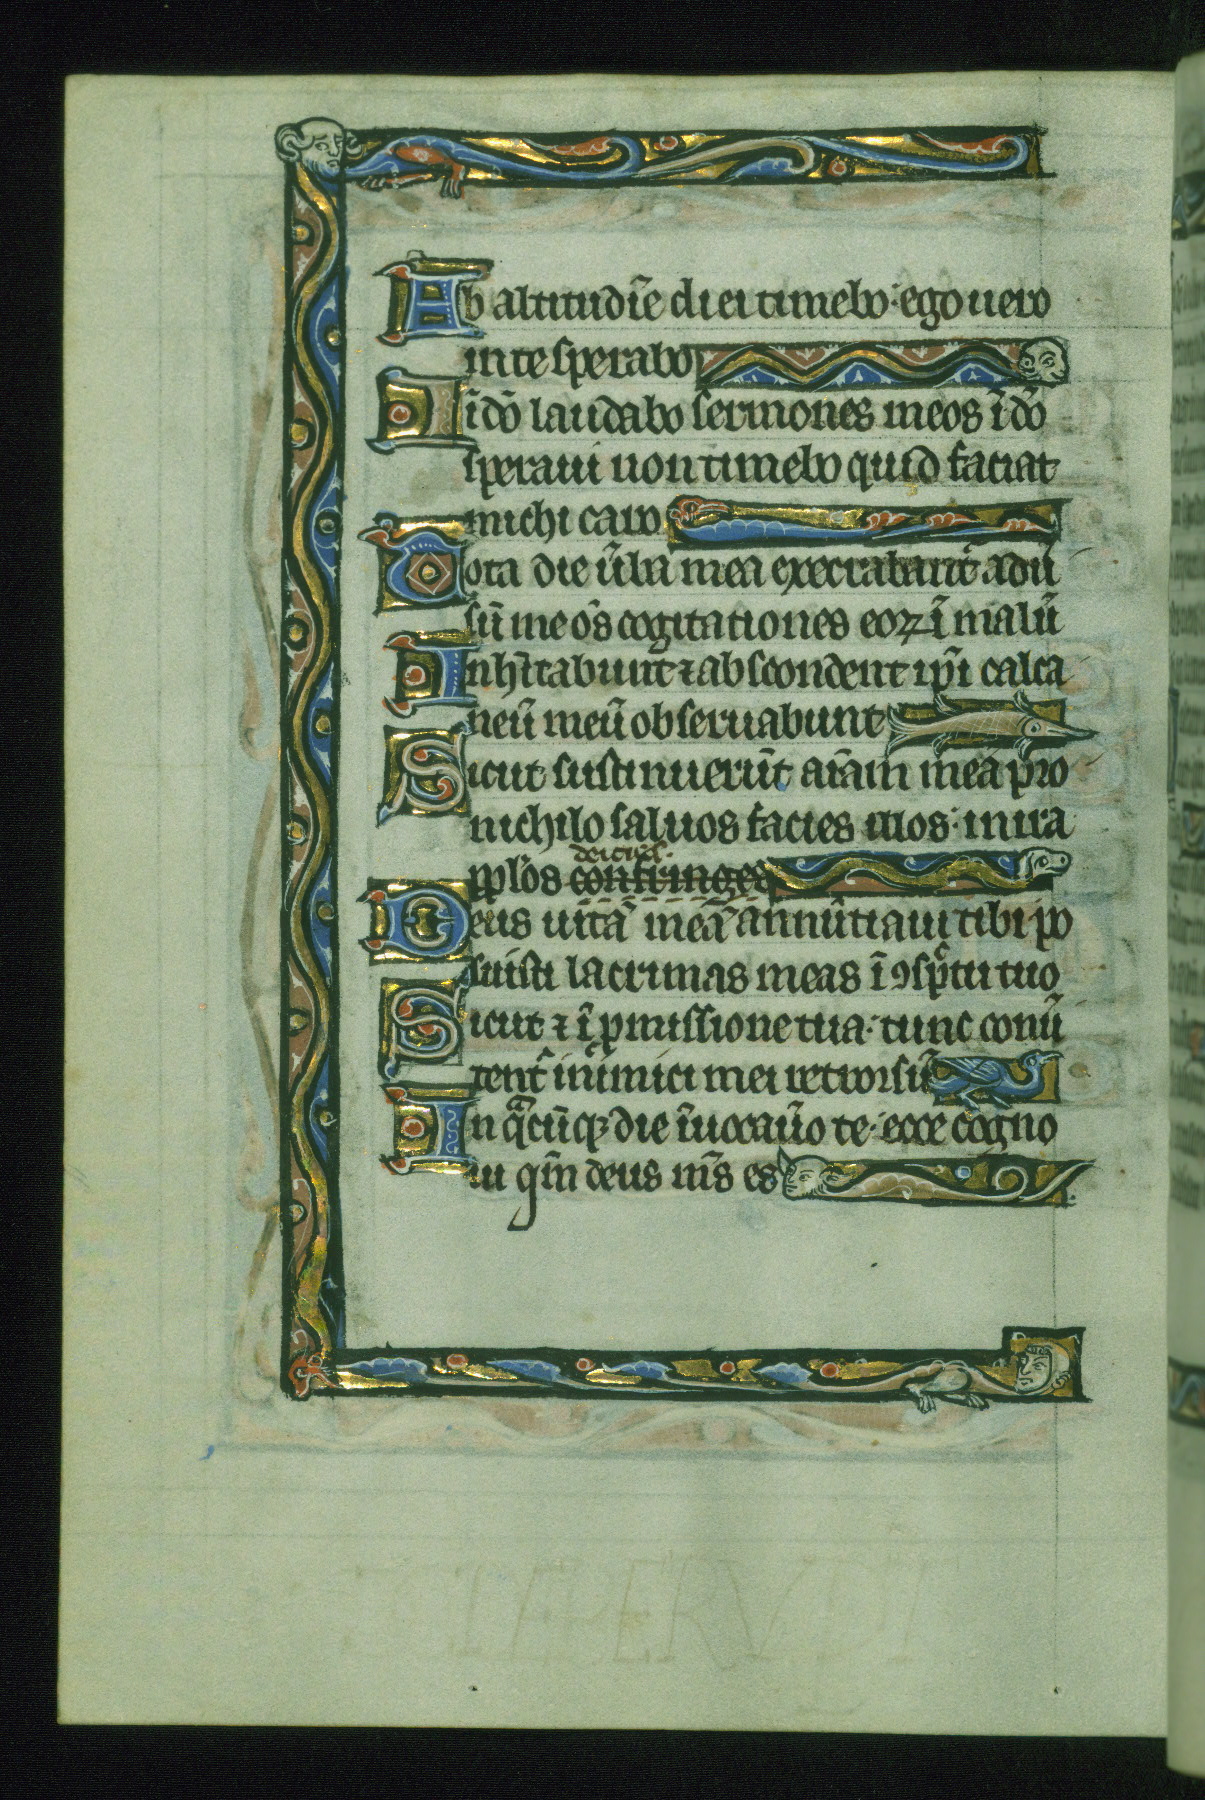 Ab altitudīe diei timebo· ego uero
in te sperabo
I ī dō laudabo sermones meos ī dō
speraui non timebo quid faciat
michi caro
Tota die ūba mea execrabant᷑ adū
sū me oēs cogitationes eoꝝ ī malū
Inhītabunt ⁊ abscondent ip̄i calca
neū meū obseruabunt
Sicut sustinuerūt aīam meā pro
nichilo saluos facies illos· in ira
pp̄los confringes deicies.
Deus uitā meā annūtiaui tibi po
suisti lacrimas meas ī ꝯspc̄tu tuo
Sicut ⁊ ī ꝓmissione tua· tunc conū
tent᷑ inimici mei retrorsū
In q̄cūqꝫ die īuocauo te· ecce cogno
ui qm̄ deus m̄s es